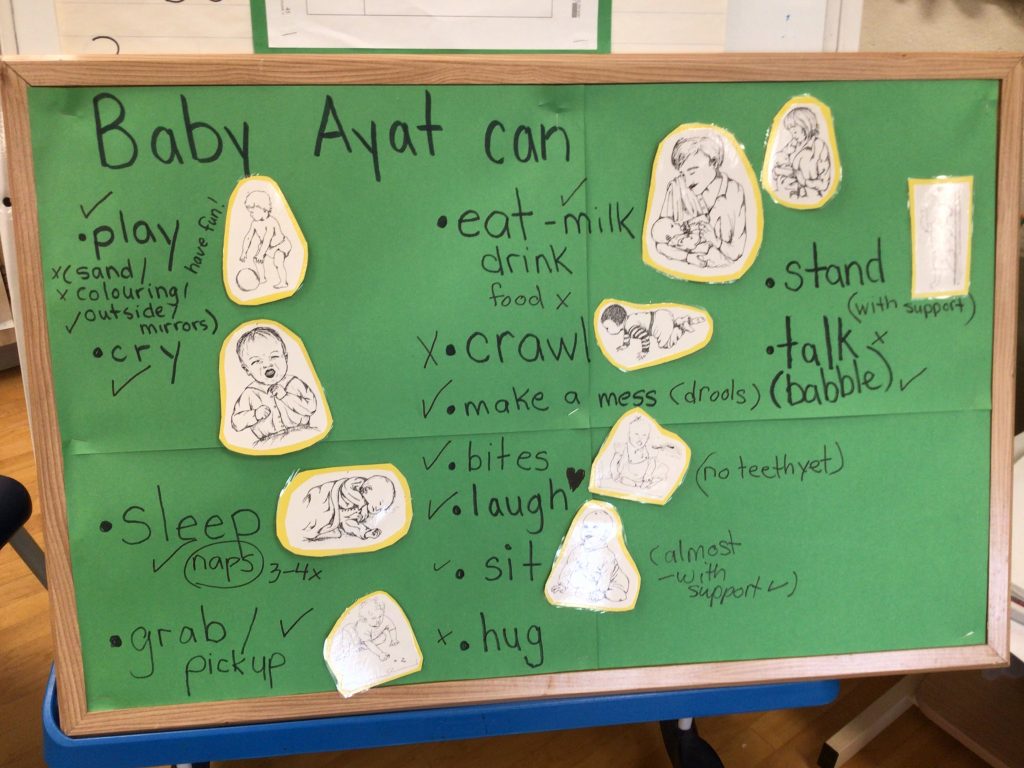 Baby Ayat can
✓
• play
have fun!
x (sand/
x colouring/
✓ outside/
mirrors)
• cry
✓
• sleep
✓ naps 3-4x
• grab / ✓
pickup
✓
• eat - milk
drink
food x
x • crawl
✓ • make a mess (drools)
✓ • bites
(no teeth yet)
✓ • laugh ♥
✓ • sit
(almost
- with
support ✓)
x • hug
• stand
(with support)
• talk x
(babble) ✓